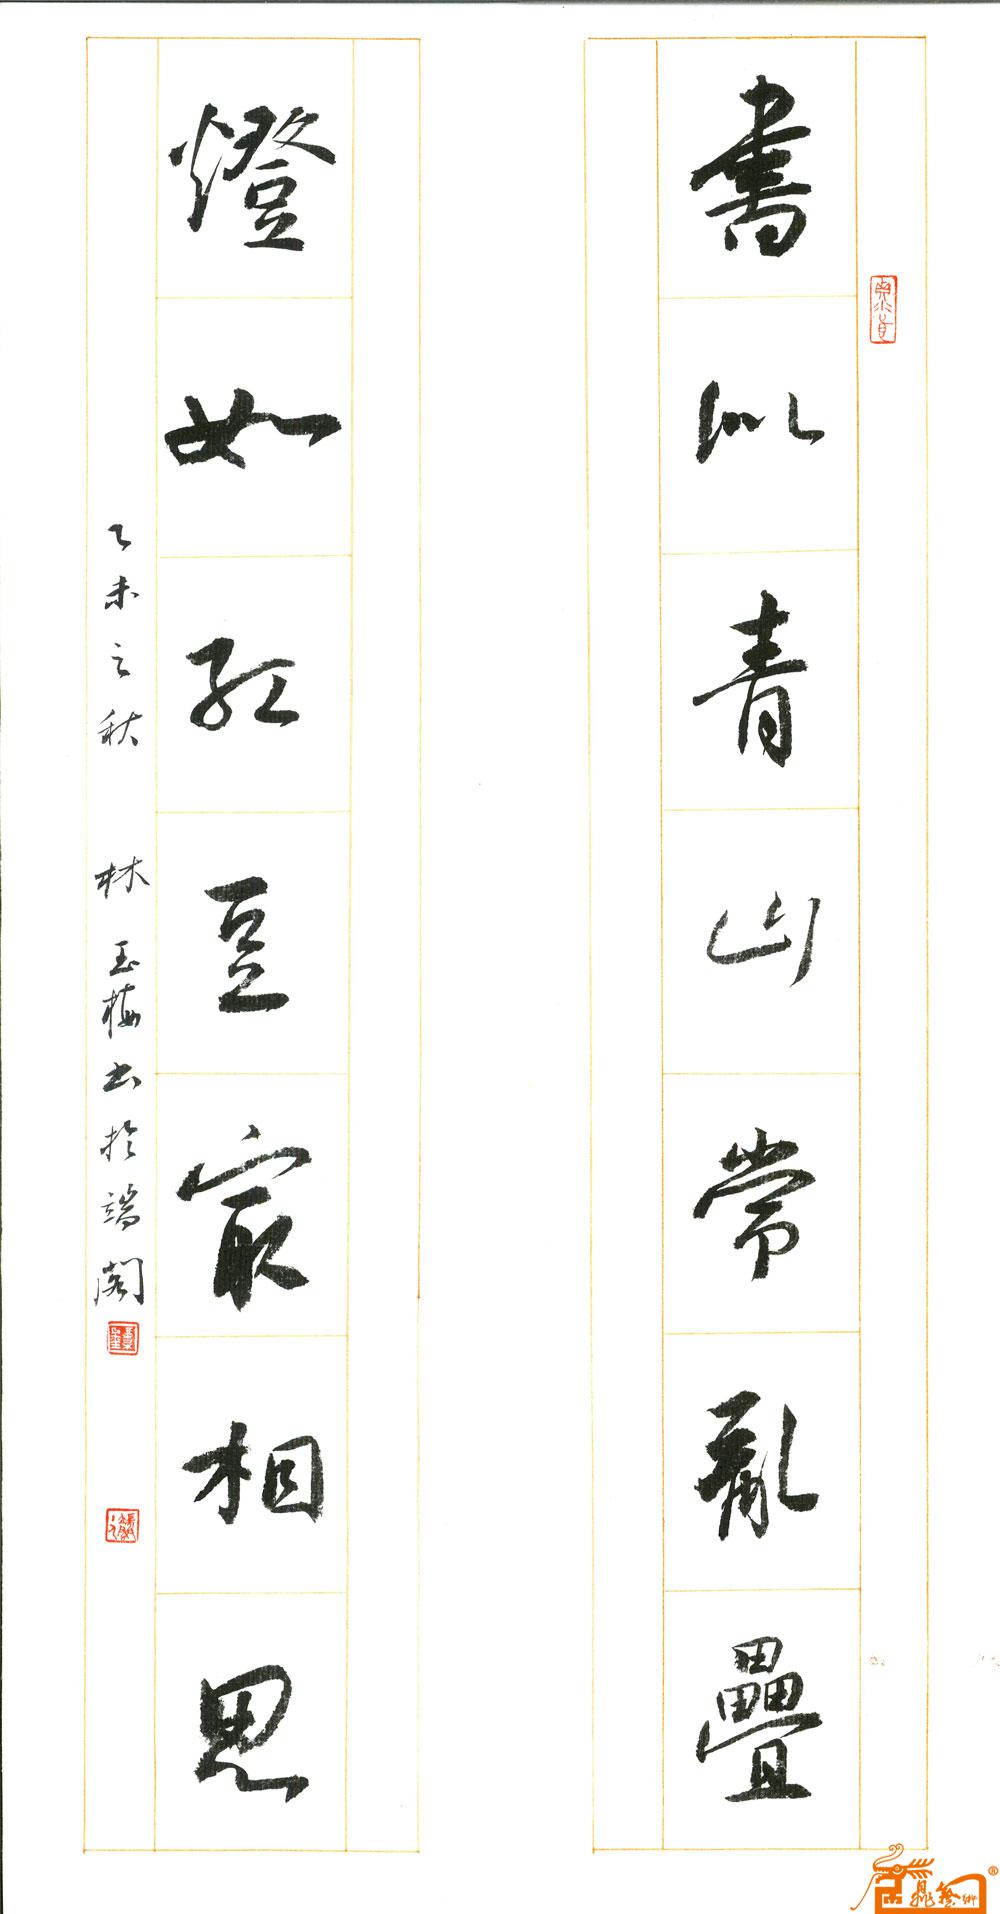 書似青山常亂疊
燈如紅豆最相思
乙未之秋 林玉梅書於端閣